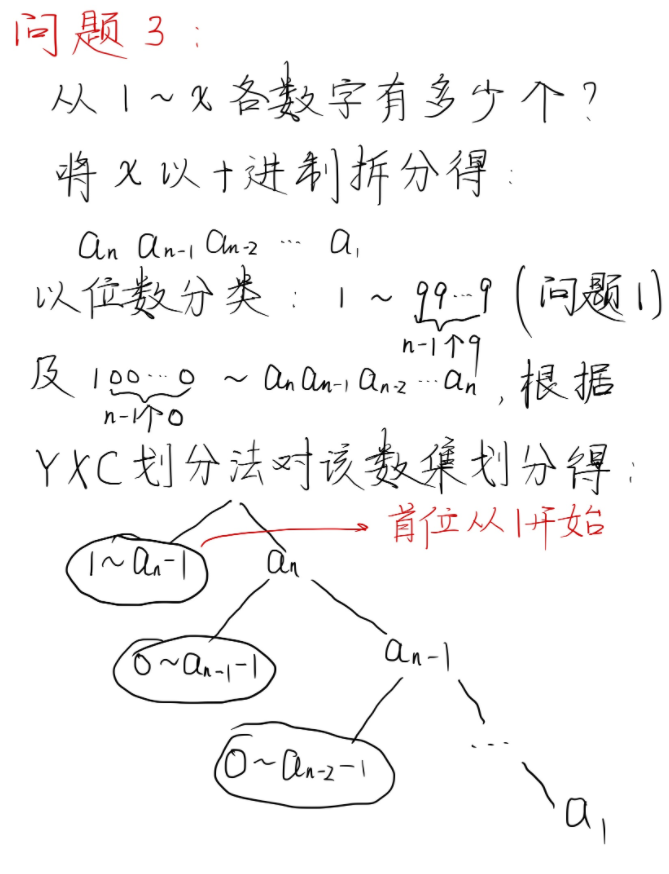 问题3:
从1~x各数字有多少个?
将x以十进制拆分得:
aₙ aₙ₋₁ aₙ₋₂ … a₁
以位数分类: 1 ~ 99…9 (问题1)
n-1个9
及 100…0 ~ aₙaₙ₋₁aₙ₋₂…aₙ, 根据
n-1个0
YXC划分法对该数集划分得:
首位从1开始
1~aₙ-1
aₙ
0~aₙ₋₁-1
aₙ₋₁
0~aₙ₋₂-1
…
a₁